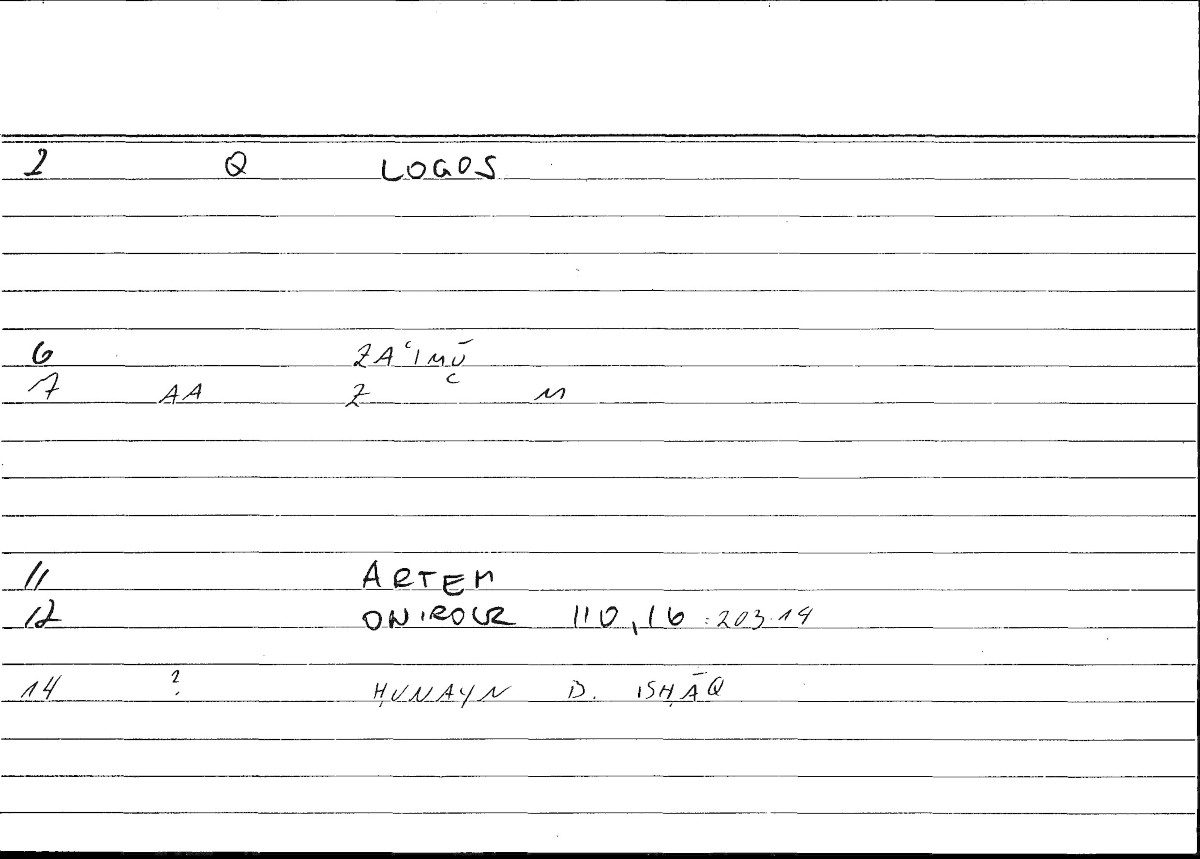 2 Q LOGOS
6 ZAʿIMŪ
7 AA Z M
11 ARTEM
12 ONIROCR 110,16 : 203.14
14 ? ḤUNAYN B. ISḤĀQ